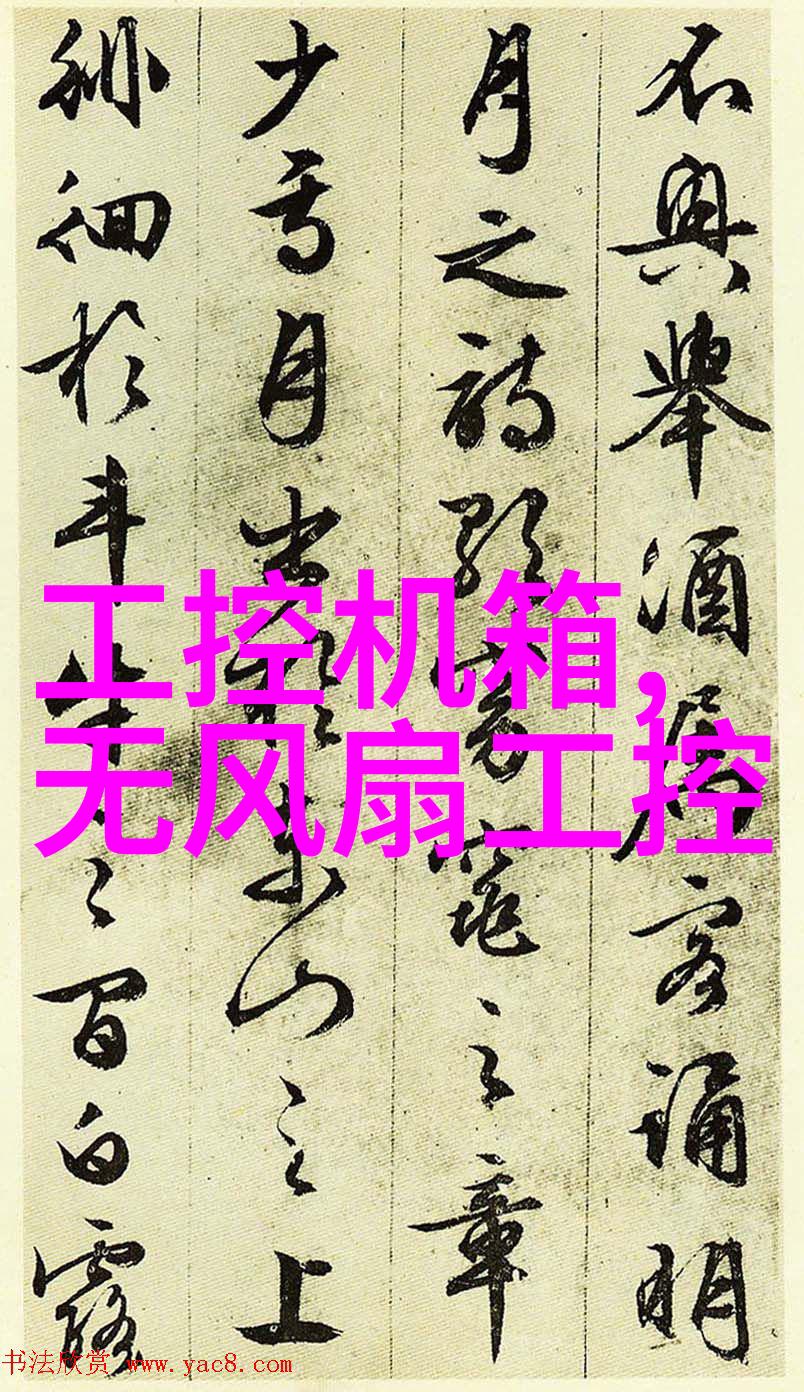 不興舉酒屬客誦明
月之詩歌窈窕之章
少焉月出於東山之上
徘徊於斗牛之間白露
工控机箱,
无风扇工控
书法欣赏 www.yac8.com